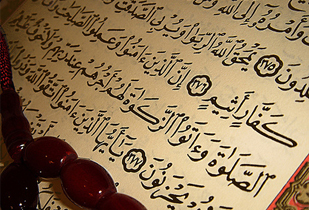 وَأَمْرُهُۥٓ إِلَى ٱللَّهِ
لِدُونَ ٢٧٥ يَمْحَقُ ٱللَّهُ ٱلرِّبَوٰا۟ وَيُرْبِى ٱلصَّدَقَٰتِ
كَفَّارٍ أَثِيمٍ ٢٧٦ إِنَّ ٱلَّذِينَ ءَامَنُوا۟ وَعَمِلُوا۟ ٱلصَّٰلِحَٰتِ
ٱلصَّلَوٰةَ وَءَاتَوُا۟ ٱلزَّكَوٰةَ لَهُمْ أَجْرُهُمْ عِندَ رَبِّهِمْ وَلَا خَوْفٌ
يَحْزَنُونَ ٢٧٧ يَٰٓأَيُّهَا ٱلَّذِينَ ءَامَنُوا۟ ٱتَّقُوا۟ ٱللَّهَ وَذَرُوا۟